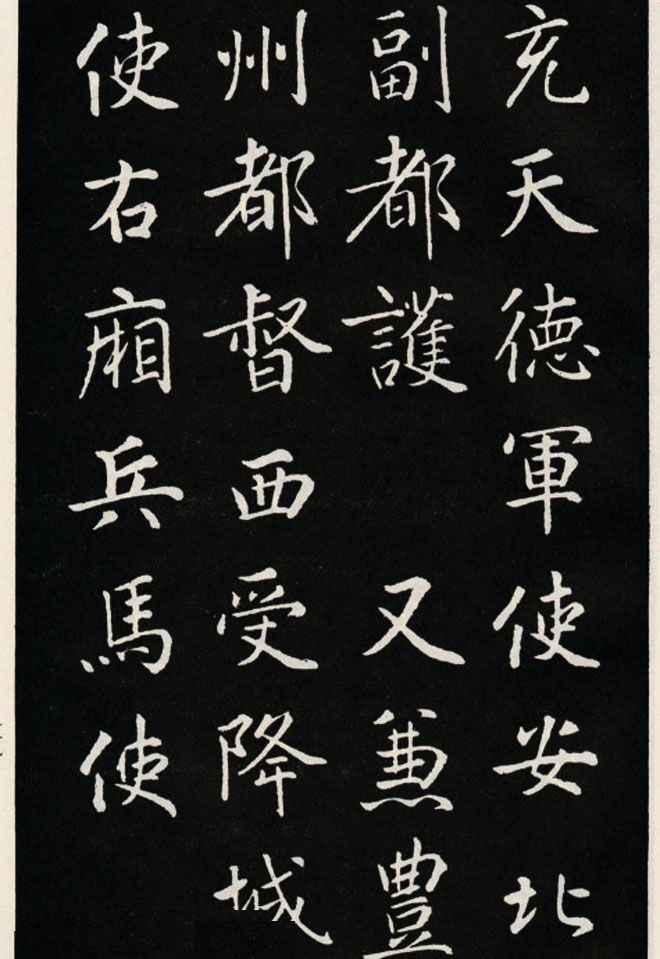 充天德軍使安北
副都護 又兼豊
州都督西受降城
使右廂兵馬使